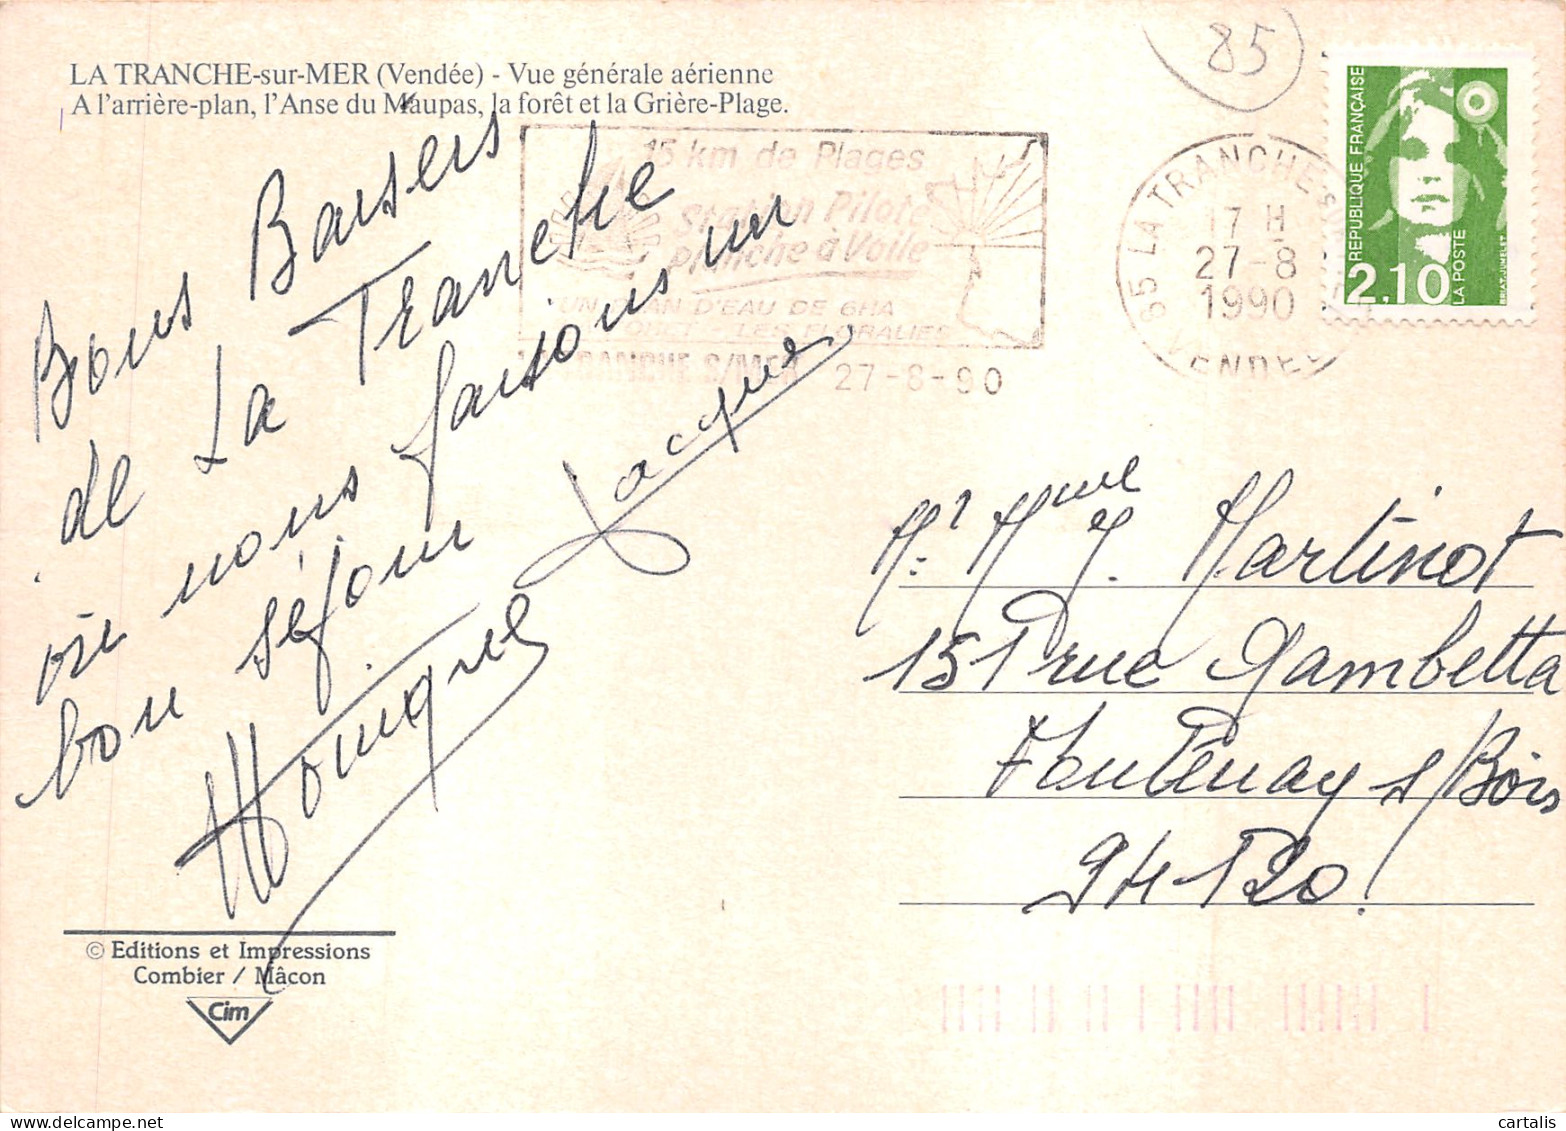 85
LA TRANCHE-sur-MER (Vendée) - Vue générale aérienne
A l'arrière-plan, l'Anse du Maupas, la forêt et la Grière-Plage.
15 km de Plages
Station Pilote
Planche à Voile
UN PLAN D'EAU DE 6HA
LES FLORALIES
LA TRANCHE S/MER 27-8-90
LA TRANCHE S
17 H
27-8
1990
85
VENDEE
REPUBLIQUE FRANÇAISE
2,10
LA POSTE
BRIAT-JUMELET
Bons Baisers
de La Tranche
où nous faisons un
bon séjour
Jacques
Monique
Mr Mme Y. Martinot
151 rue Gambetta
Fontenay s/Bois
94120!
© Editions et Impressions
Combier / Mâcon
Cim
www.delcampe.net
cartalis